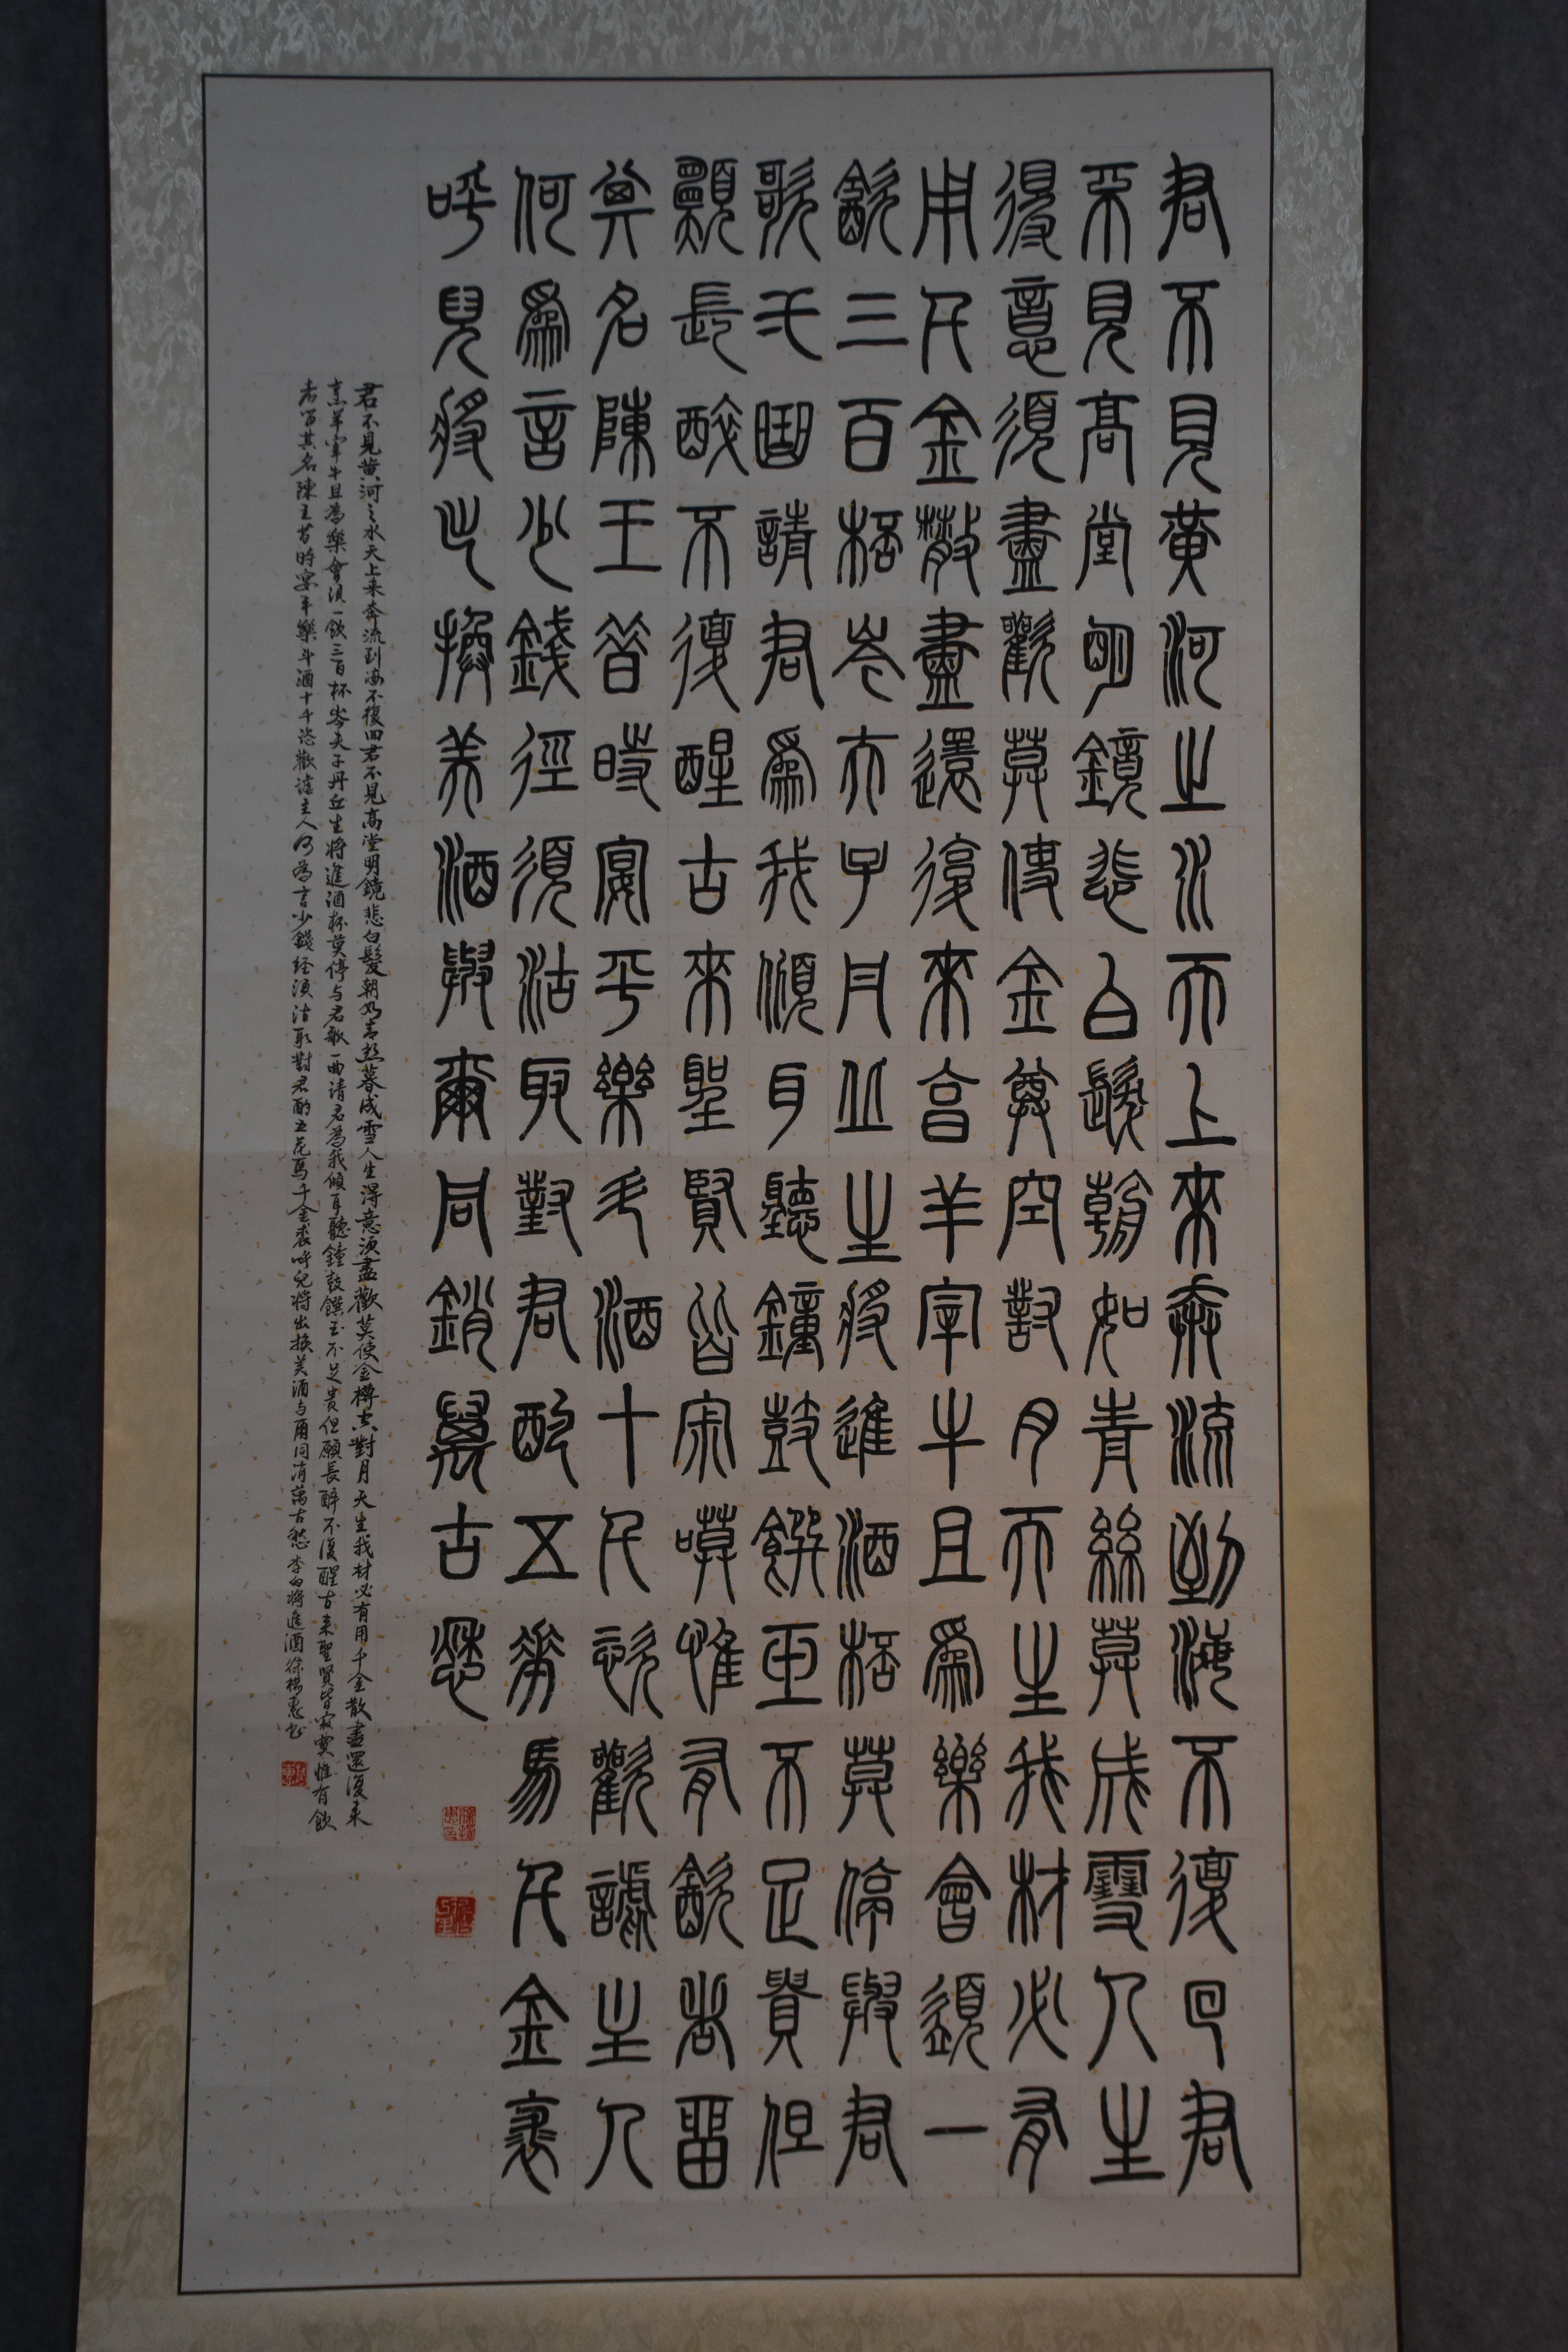 君不見黃河之水天上來奔流到海不復回君
不見高堂明鏡悲白髮朝如青絲莫成雪人生
得意須盡歡莫使金尊空對月天生我材必有
用千金散盡還復來亯羊宰牛且為樂會須一
飲三百桮岑夫子丹丘生將進酒桮莫停與君
歌弌曲請君為我傾耳聽鐘鼓饌玉不足貴但
願長醉不復醒古來聖賢皆寂嗼惟有飲者畱
其名陳王昔時宴平樂斗酒十千恣歡謔主人
何為言少錢徑須沽取對君酌五花馬千金裘
呼兒將出換美酒與爾同銷萬古愁
君不見黃河之水天上来奔流到海不復回君不見高堂明鏡悲白髮朝如青絲暮成雪人生得意須盡歡莫使金樽空對月天生我材必有用千金散盡還復来
烹羊宰牛且為樂會須一飲三百杯岑夫子丹丘生將進酒杯莫停与君歌一曲请君為我傾耳聽鐘鼓饌玉不足贵但願長醉不復醒古来聖賢皆寂寞惟有飲
者留其名陳王昔時宴平樂斗酒十千恣歡謔主人何為言少錢径須沽取對君酌五花馬千金裘呼兒將出換美酒与爾同消萬古愁 李白將進酒 徐